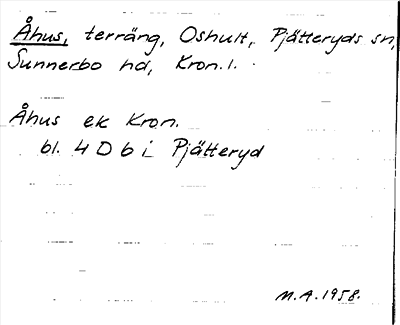 Åhus, terräng, Oshult, Pjätteryds sn,
Sunnerbo hd, Kron.l.
Åhus ek Kron.
bl. 4 D 6 i Pjätteryd
M.A. 1958.